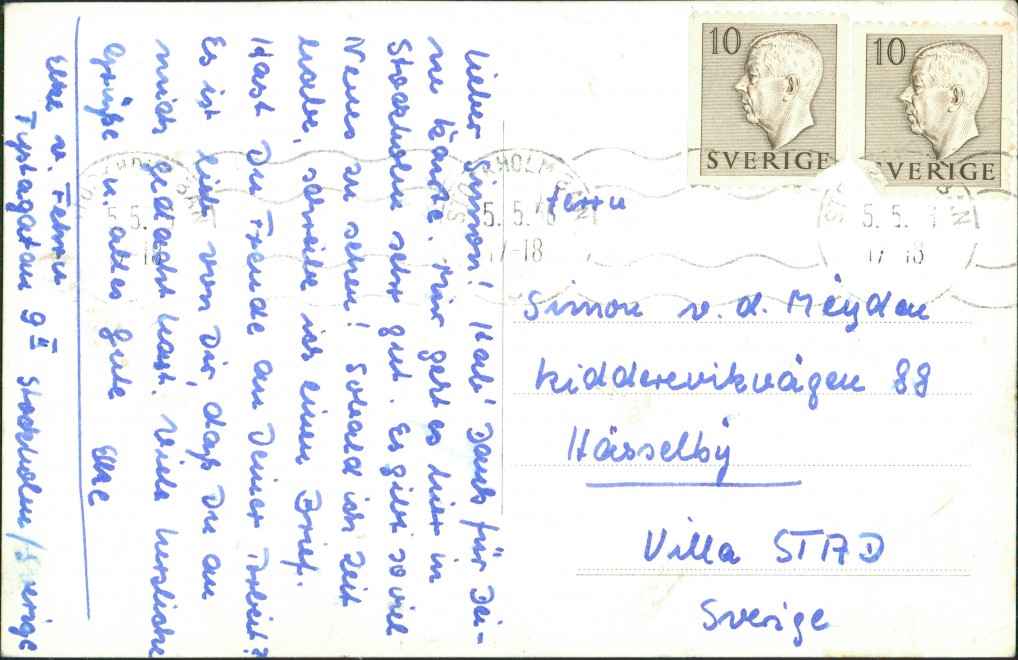 Lieber Simon! Hab' Dank für Dei-
ne Karte. Mir geht es hier in
Stockholm sehr gut. Es gibt so viel
Neues zu sehen! Sobald ich Zeit
habe, schreibe ich einen Brief.
Hast Du Freude an Deiner Arbeit?
Es ist lieb von Dir, daß Du an
mich gedacht hast. Viele herzliche
Grüße u. alles gute Elke
Elke v. Fehrn
Tystagatan 9 II Stockholm / Sverige
10 SVERIGE
10 SVERIGE
STOCKHOLM BAN
5.5.
17-18
Herrn
Simon v. d. Meyden
Kidderevikvägen 88
Hässelby
Villa STAD
Sverige